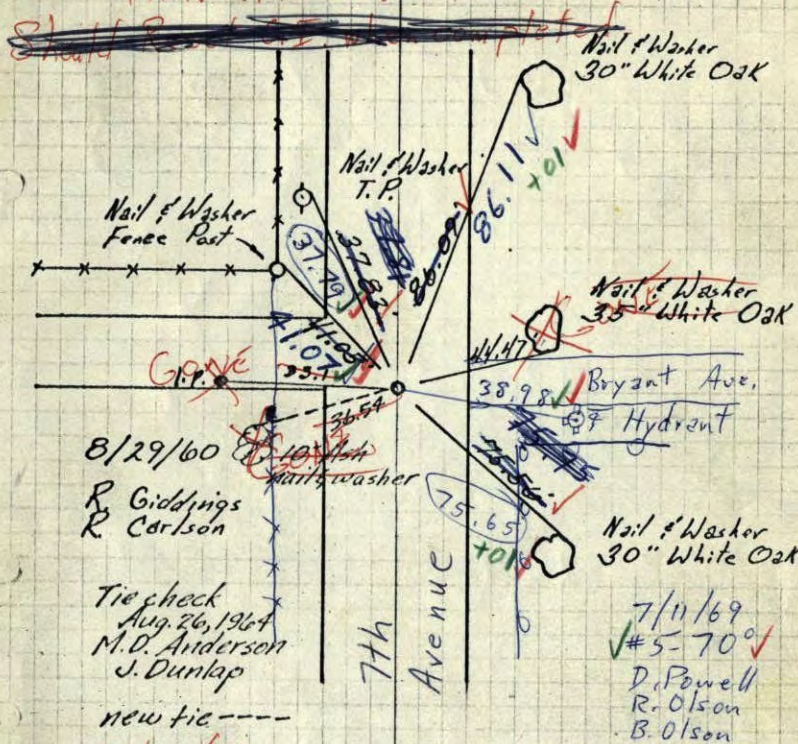 Should Reset G.I. when completed
Nail & Washer
30" White Oak
Nail & Washer
T.P.
86.11
+01
86.09
Nail & Washer
Fence Post
37.79
37.82
41.07
41.05
Nail & Washer
35" White Oak
44.47'
Gone
I.P.
33.1
38.98
Bryant Ave.
℄ Hydrant
36.54
Gone
10" Ash
nail & washer
8/29/60
R. Giddings
R. Carlson
75.65
+01
Nail & Washer
30" White Oak
Tie check
Aug. 26, 1964
M.D. Anderson
J. Dunlap
new tie ----
7th Avenue
7/11/69
#5-70°
D. Powell
R. Olson
B. Olson